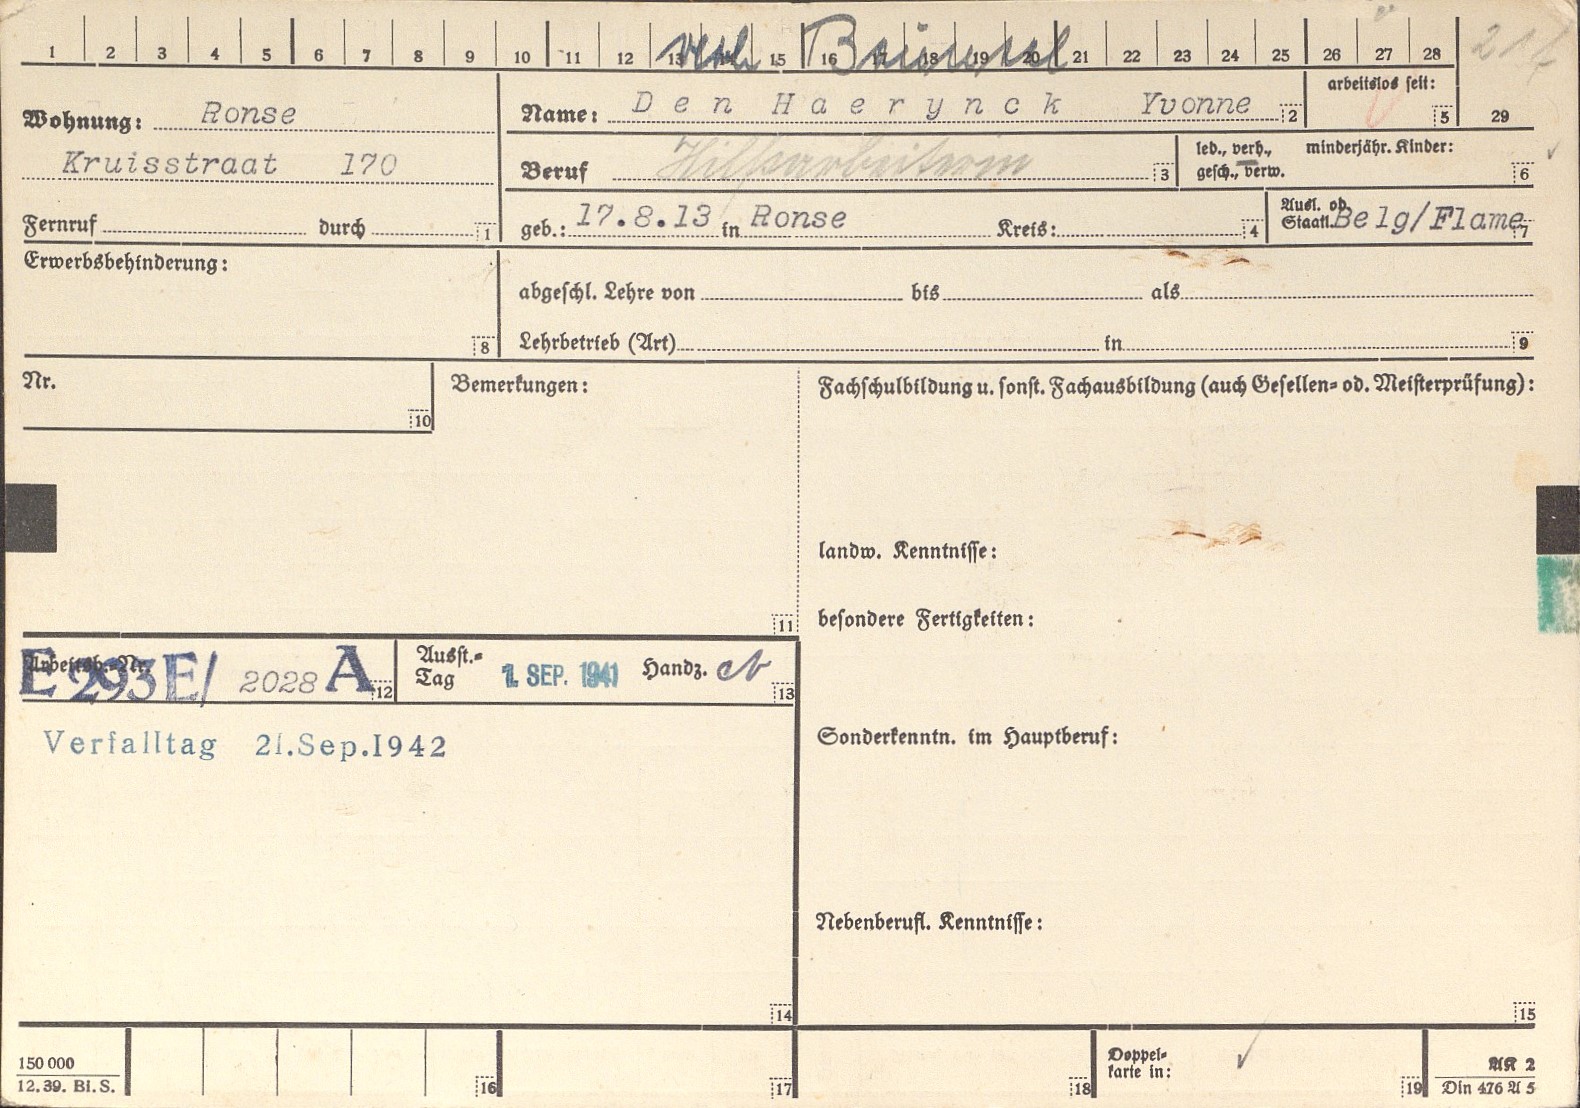 1 2 3 4 5 6 7 8 9 10 11 12 13 15 16 17 18 19 20 21 22 23 24 25 26 27 28
verh
Wohnung: Ronse
Kruisstraat 170
Fernruf durch 1
Name: Den Haerynck Yvonne 2
arbeitslos seit: 5
29
Beruf Hilfsarbeiterin 3
led., verh., gesch., verw.
minderjähr. Kinder: 6
geb.: 17.8.13 in Ronse Kreis: 4
Ausl. od. Staatl. Belg/Flame 7
Erwerbsbehinderung: 8
abgeschl. Lehre von bis als
Lehrbetrieb (Art) in 9
Nr. 10
Bemerkungen: 11
Fachschulbildung u. sonst. Fachausbildung (auch Gesellen= od. Meisterprüfung):
landw. Kenntnisse:
besondere Fertigkeiten:
Arbeitsb.=Nr. E 293E/ 2028 A 12
Ausst.=Tag 1. SEP. 1941 Handz. 13
Verfalltag 21.Sep.1942
14
Sonderkenntn. im Hauptberuf:
Nebenberufl. Kenntnisse:
15
150 000
12. 39. Bl. S.
16 17 18
Doppel=
karte in: 19
AK 2
Din 476 A 5